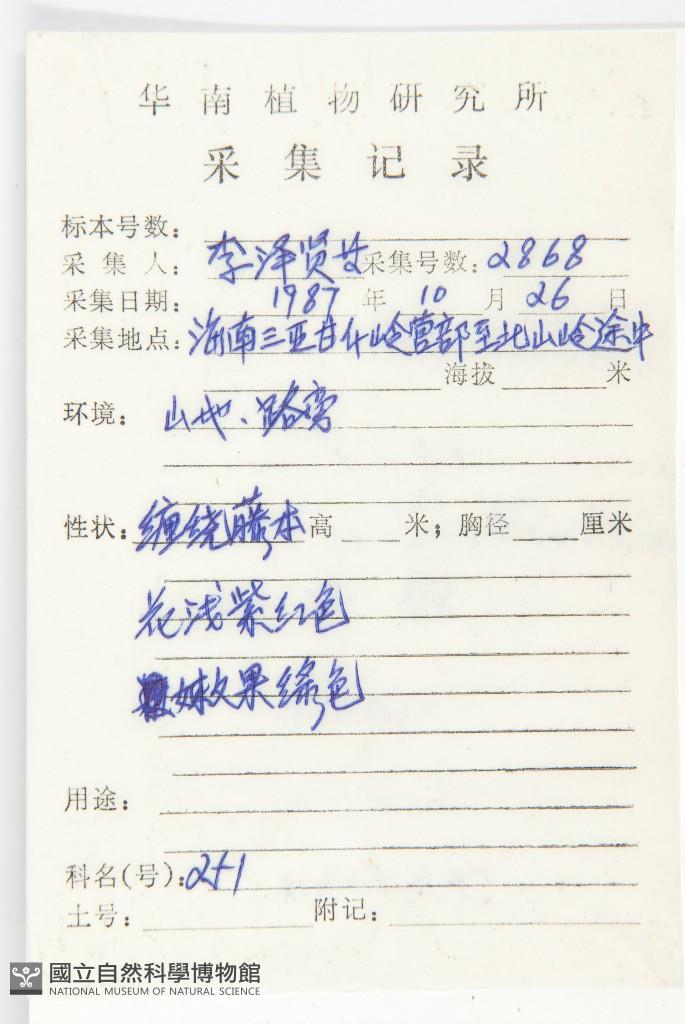 华南植物研究所
采集记录
标本号数:
采集人: 李泽贤 采集号数: 2868
采集日期: 1987 年 10 月 26 日
采集地点: 海南三亚甘什岭营部至北山岭途中
海拔 米
环境: 山地、路旁
性状: 缠绕藤本 高 米; 胸径 厘米
花浅紫红色
果绿色
用途:
科名(号):
土号: 附记:
國立自然科學博物館
NATIONAL MUSEUM OF NATURAL SCIENCE